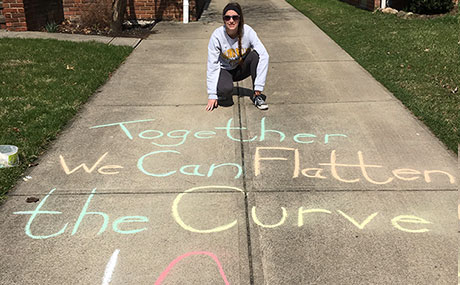 Together
We Can Flatten
the Curve!